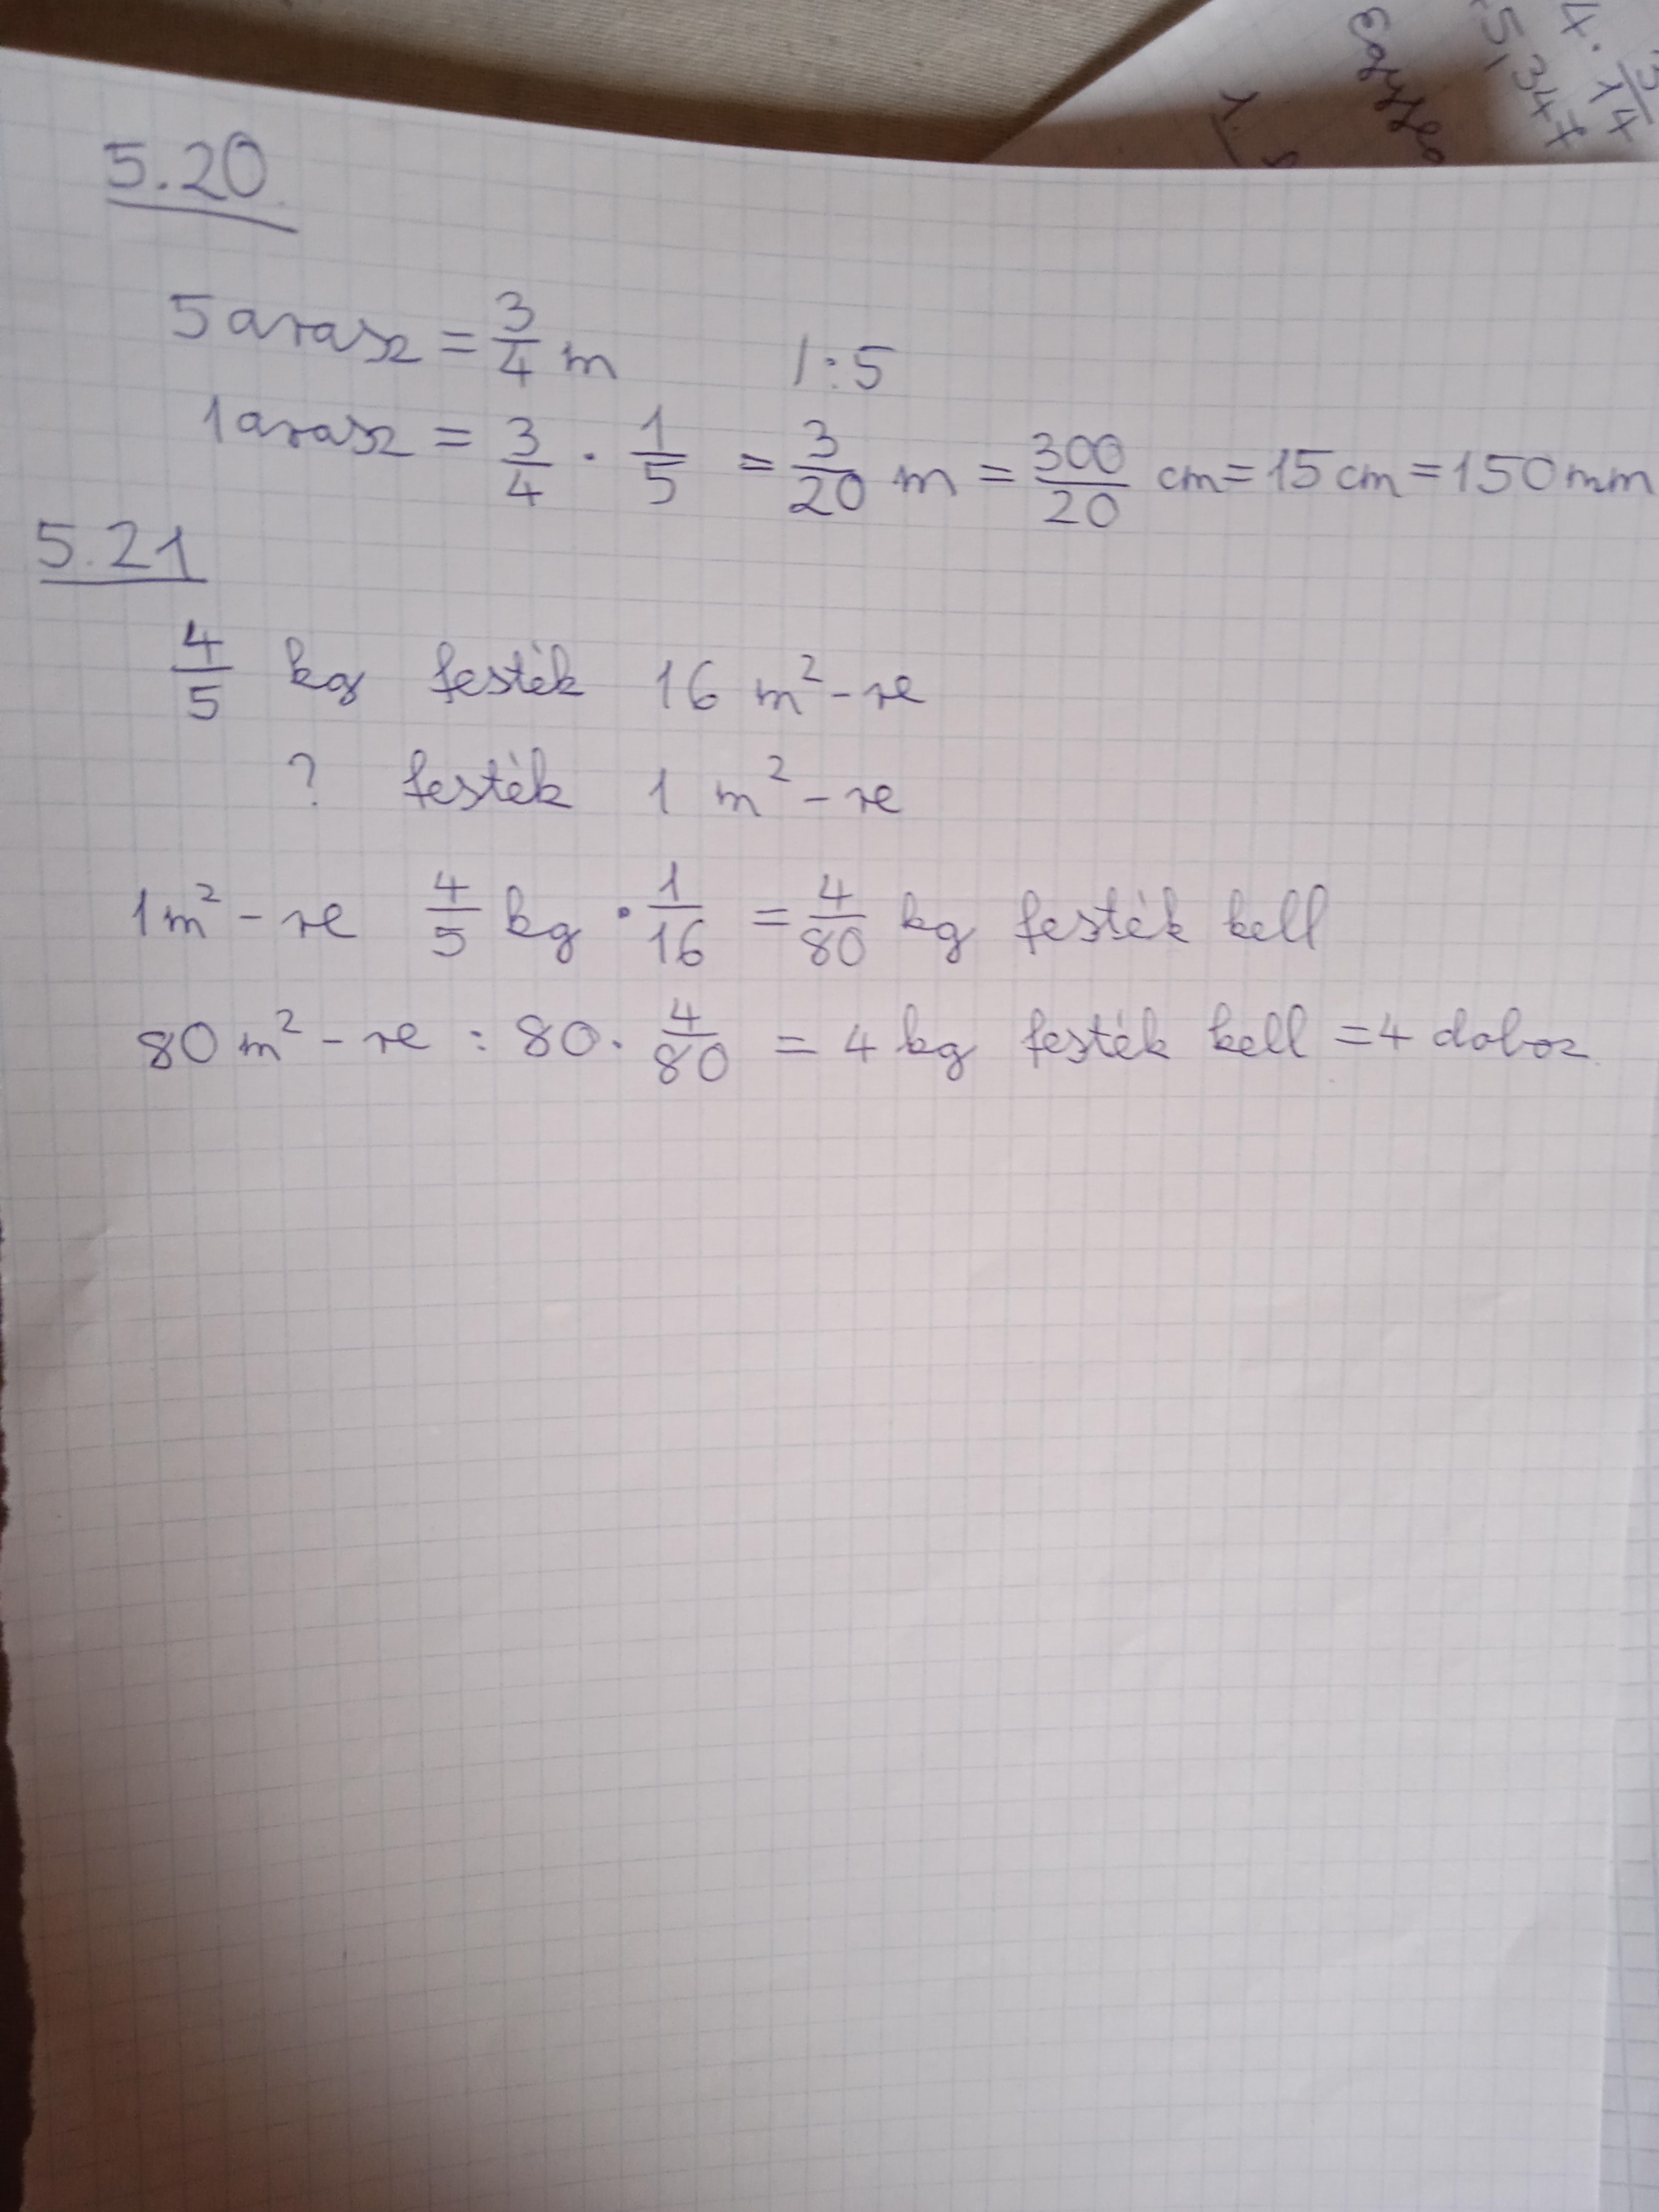 4 · 3/14
5,347
1.
5.20
5 arasz = 3/4 m /:5
1 arasz = 3/4 · 1/5 = 3/20 m = 300/20 cm = 15 cm = 150 mm
5.21
4/5 kg festék 16 m²-re
? festék 1 m²-re
1 m²-re 4/5 kg · 1/16 = 4/80 kg festék kell
80 m²-re : 80 · 4/80 = 4 kg festék kell = 4 doboz